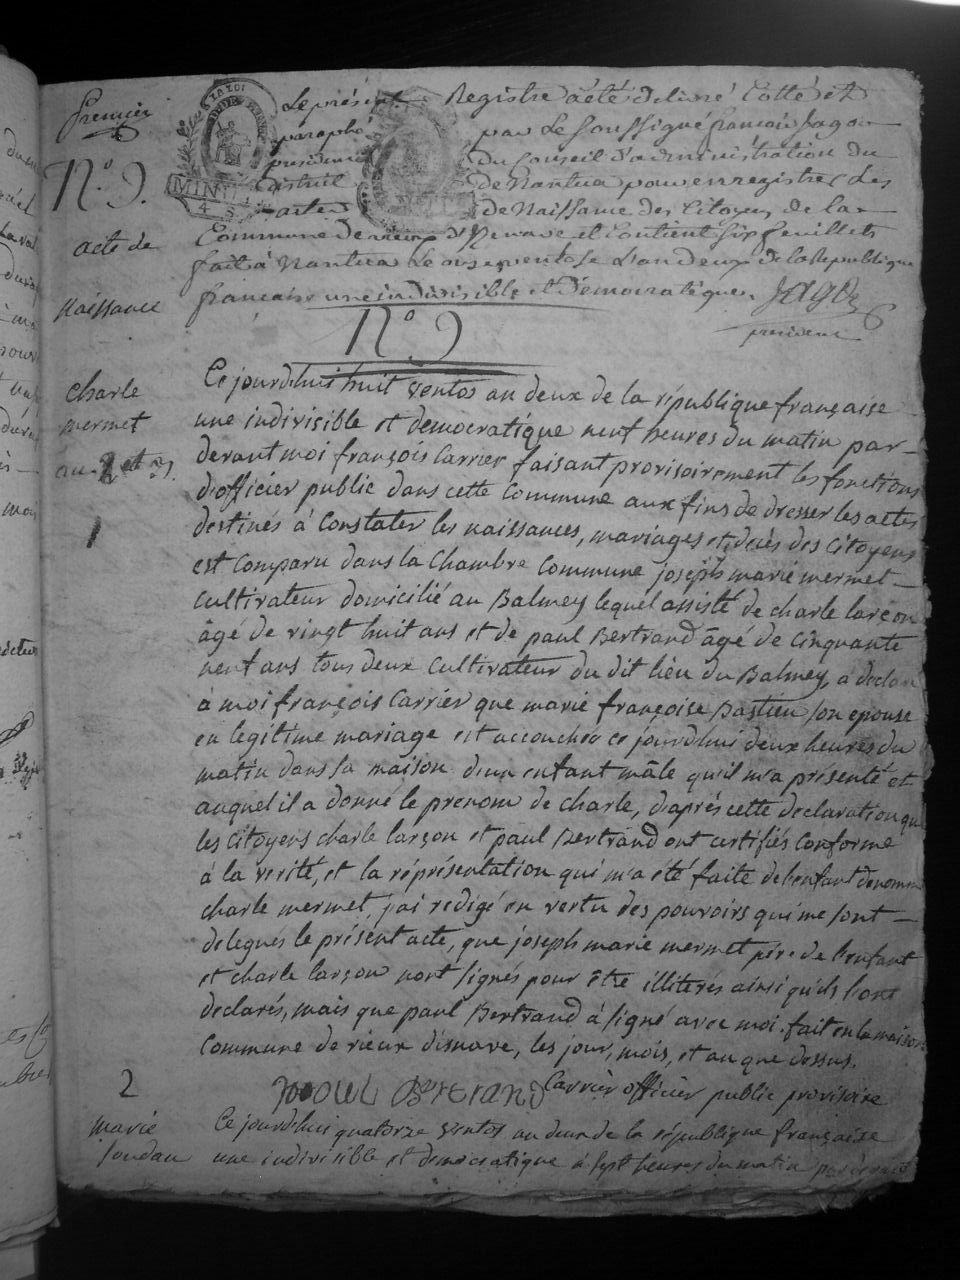 Premier
Le présent Registre a été délivré Cotté et
paraphé par Le Soussigné françois Jagot
président du Conseil d'administration du
District de Nantua pour enregistrer Les
actes de Naissance des Citoyens de la
Commune de vieux d'Izenave et Contient six feuillets
fait à Nantua Le onze ventose L'an deux de la Republique
française une indivisible et démocratique. Jagot
president
N.º 9.
acte de
Naissance
N.º 9
charle
mermet
1
Ce jourdhui huit ventos an deux de la république française
une indivisible et democratique neuf heures du matin par-
devant moi françois Carrier faisant provisoirement les fonctions
d'officier public dans cette Commune aux fins de dresser les actes
destinés à Constater les naissances, mariages et décès des Citoyens
est Comparu dans la Chambre Commune joseph marie mermet
Cultivateur domicilié au Balmey lequel assisté de charle larçon
âgé de vingt huit ans et de paul Bertrand âgé de Cinquante
neuf ans tous deux Cultivateur du dit lieu du Balmey, a declaré
à moi françois Carrier que marie françoise Bastien son epouse
en légitime mariage est accouchée ce jourdhui deux heures du
matin dans sa maison d'un enfant mâle qu'il m'a présenté et
auquel il a donné le prenom de charle, d'après cette declaration que
les Citoyens charle larçon et paul Bertrand ont certifiés Conforme
à la verité, et la réprésentation qui m'a été faite de l'enfant denommé
charle mermet, j'ai redigé en vertu des pouvoirs qui me sont
delegués le présent acte, que joseph marie mermet père de l'enfant
et charle larçon n'ont signés pour être illitérés ainsi qu'ils l'ont
declarés, mais que paul Bertrand à signé avec moi. fait en la maison
Commune de vieux disnave, les jour, mois, et an que dessus.
Bertrand Carrier officier public provisoire
2
marie
Ce jourdhui quatorze ventos an deux de la république française
une indivisible et democratique à sept heures du matin par devant